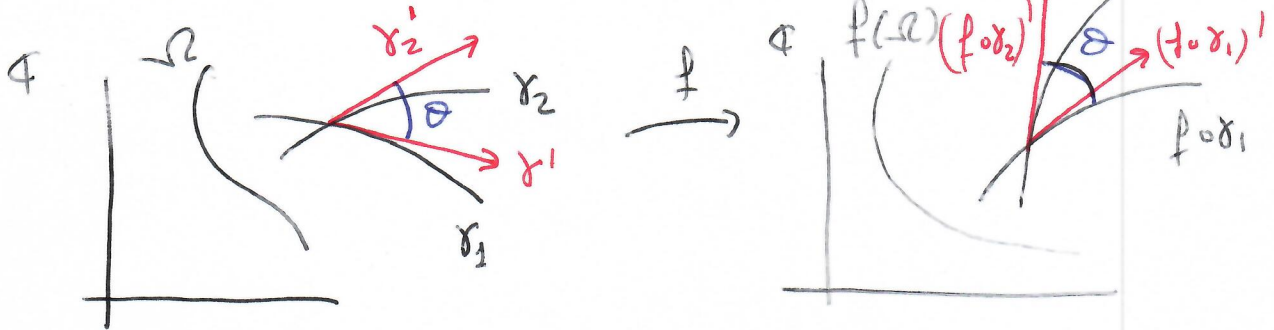 ℂ Ω γ₂' θ γ₂ γ' γ₁
f
ℂ f(Ω) (f∘γ₂)' θ (f∘γ₁)' f∘γ₁